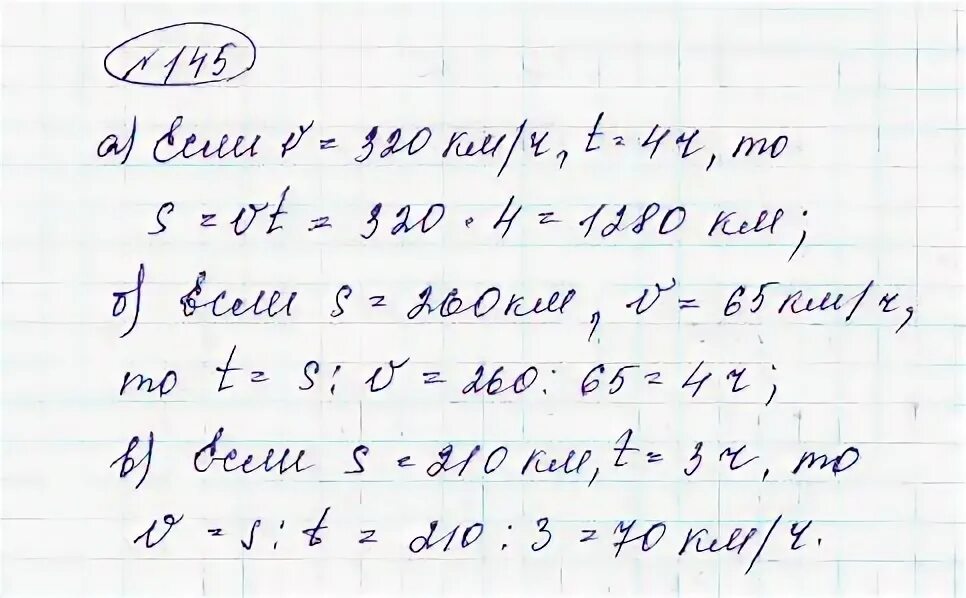 №145
а) Если v = 320 км/ч, t = 4 ч, то
s = vt = 320 · 4 = 1280 км;
б) Если s = 260 км, v = 65 км/ч,
то t = s : v = 260 : 65 = 4 ч;
в) Если s = 210 км, t = 3 ч, то
v = s : t = 210 : 3 = 70 км/ч.